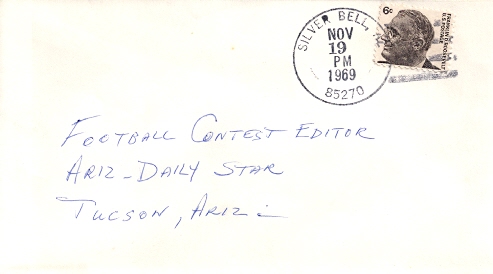 SILVER BELL,
NOV
19
PM
1969
85270
6c
FRANKLIN D. ROOSEVELT
U.S. POSTAGE
FOOTBALL CONTEST EDITOR
ARIZ-DAILY STAR
TUCSON, ARIZ